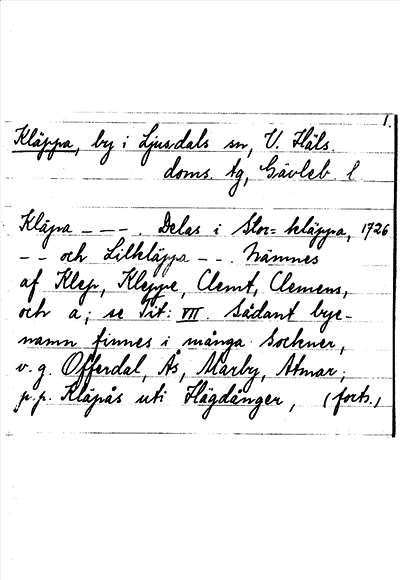 1.
Kläppa, by i Ljusdals sn, V. Häls.
doms. tg, Gävleb l
Kläpa - - - . Delas i Stor= kläppa, 1726
- - och Lilkläppa - - . Nämnes
af Klep, Kleppe, Clemt, Clemens,
och a; se Tit: VII. Sådant bye-
namn finnes i många Sockner,
v. g. Offerdal, Ås, Marby, Atmar;
p.p. Kläpås uti Hägdånger, (forts.)